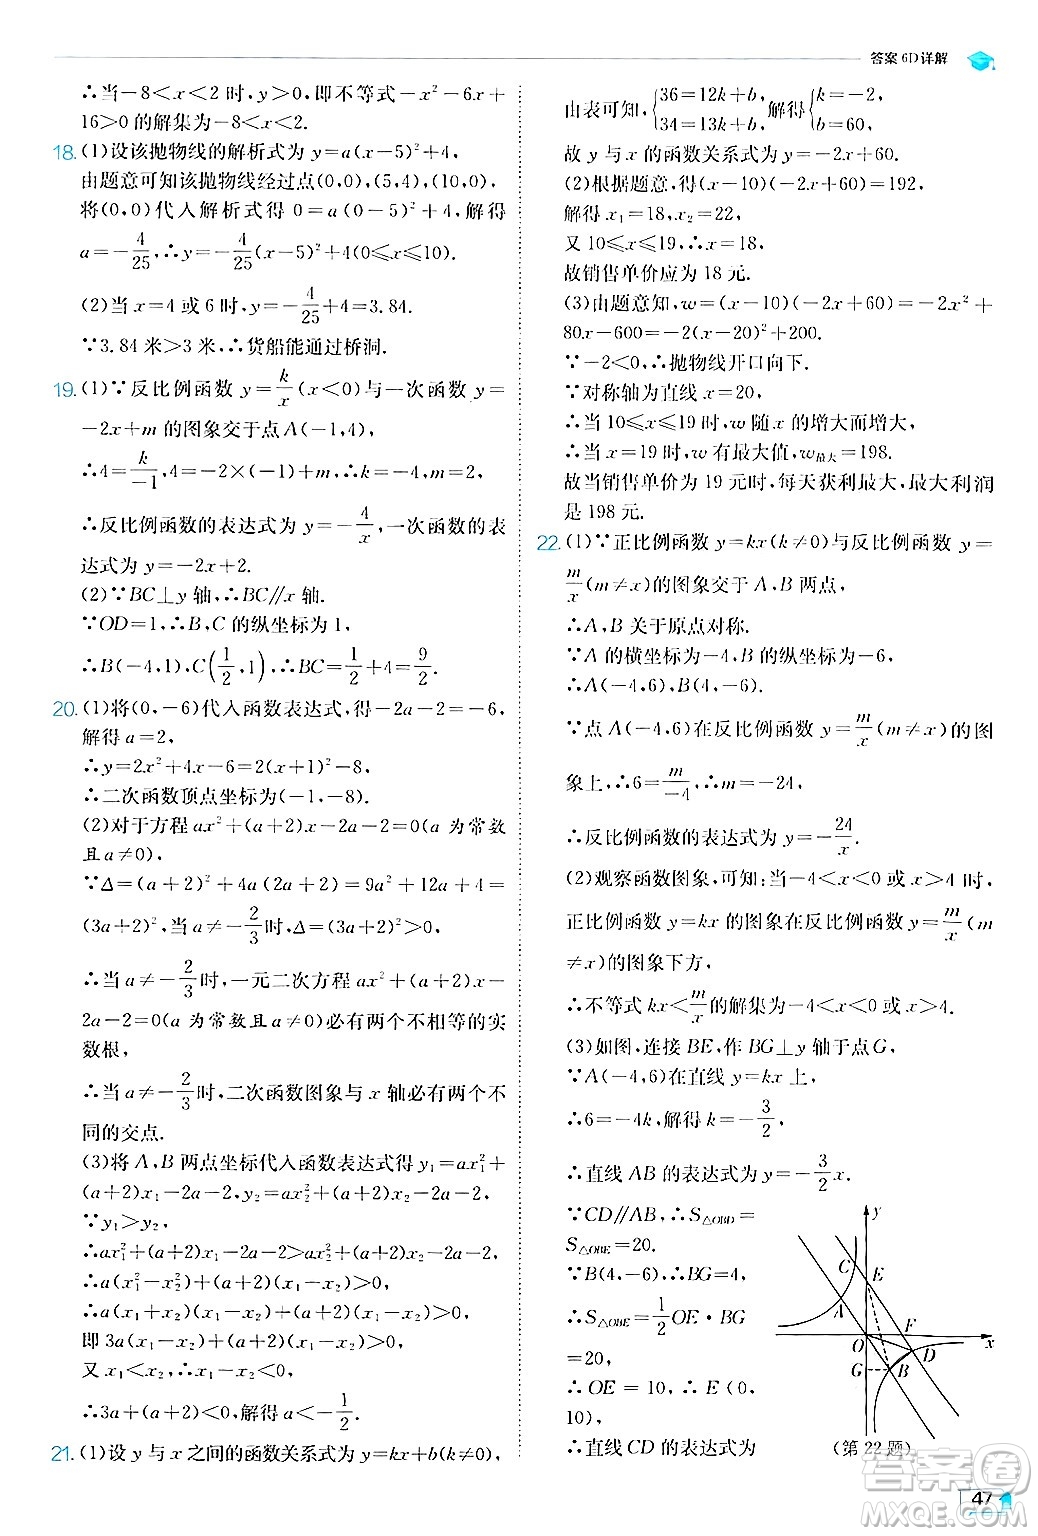 答案 6D详解
∴当-8<x<2 时,y>0,即不等式-x²-6x+
16>0 的解集为-8<x<2.
18. (1)设该抛物线的解析式为 y=a(x-5)²+4,
由题意可知该抛物线经过点(0,0),(5,4),(10,0),
将(0,0)代入解析式得 0=a(0-5)²+4,解得
a=-4/25,∴y=-4/25(x-5)²+4(0≤x≤10).
(2)当 x=4 或 6时,y=-4/25+4=3.84.
∵3.84 米>3 米,∴货船能通过桥洞.
19. (1)∵反比例函数 y=k/x(x<0)与一次函数 y=
-2x+m 的图象交于点 A(-1,4),
∴4=k/-1,4=-2×(-1)+m,∴k=-4,m=2,
∴反比例函数的表达式为 y=-4/x,一次函数的表
达式为 y=-2x+2.
(2)∵BC⊥y 轴,∴BC∥x 轴.
∵OD=1,∴B,C 的纵坐标为 1,
∴B(-4,1),C(1/2,1),∴BC=1/2+4=9/2.
20. (1)将(0,-6)代入函数表达式,得-2a-2=-6,
解得 a=2,
∴y=2x²+4x-6=2(x+1)²-8,
∴二次函数顶点坐标为(-1,-8).
(2)对于方程 ax²+(a+2)x-2a-2=0(a 为常数
且 a≠0),
∵Δ=(a+2)²+4a(2a+2)=9a²+12a+4=
(3a+2)²,当 a≠-2/3时,Δ=(3a+2)²>0,
∴当 a≠-2/3时,一元二次方程 ax²+(a+2)x-
2a-2=0(a 为常数且 a≠0)必有两个不相等的实
数根,
∴当 a≠-2/3时,二次函数图象与 x 轴必有两个不
同的交点.
(3)将 A,B 两点坐标代入函数表达式得 y₁=ax₁²+
(a+2)x₁-2a-2,y₂=ax₂²+(a+2)x₂-2a-2,
∵y₁>y₂,
∴ax₁²+(a+2)x₁-2a-2>ax₂²+(a+2)x₂-2a-2,
∴a(x₁²-x₂²)+(a+2)(x₁-x₂)>0,
∴a(x₁+x₂)(x₁-x₂)+(a+2)(x₁-x₂)>0,
即 3a(x₁-x₂)+(a+2)(x₁-x₂)>0,
又 x₁<x₂,∴x₁-x₂<0,
∴3a+(a+2)<0,解得 a<-1/2.
21. (1)设 y 与 x 之间的函数关系式为 y=kx+b(k≠0),
由表可知,{36=12k+b, 34=13k+b,解得{k=-2, b=60,
故 y 与 x 的函数关系式为 y=-2x+60.
(2)根据题意,得(x-10)(-2x+60)=192,
解得 x₁=18,x₂=22.
又 10≤x≤19,∴x=18,
故销售单价应为 18 元.
(3)由题意知,w=(x-10)(-2x+60)=-2x²+
80x-600=-2(x-20)²+200.
∵-2<0,∴抛物线开口向下.
∵对称轴为直线 x=20,
∴当 10≤x≤19 时,w 随 x 的增大而增大,
∴当 x=19 时,w 有最大值,w最大=198.
故当销售单价为 19 元时,每天获利最大,最大利润
是 198 元.
22. (1)∵正比例函数 y=kx(k≠0)与反比例函数 y=
m/x(m≠x)的图象交于 A,B 两点,
∴A,B 关于原点对称.
∵A 的横坐标为-4,B 的纵坐标为-6,
∴A(-4,6),B(4,-6).
∵点 A(-4,6)在反比例函数 y=m/x(m≠x)的图
象上,∴6=m/-4,∴m=-24,
∴反比例函数的表达式为 y=-24/x.
(2)观察函数图象,可知:当-4<x<0 或 x>4时,
正比例函数 y=kx 的图象在反比例函数 y=m/x(m
≠x)的图象下方,
∴不等式 kx<m/x的解集为-4<x<0 或 x>4.
(3)如图,连接 BE,作 BG⊥y 轴于点 G,
∵A(-4,6)在直线 y=kx 上,
∴6=-4k,解得 k=-3/2,
∴直线 AB 的表达式为 y=-3/2x.
∵CD∥AB,∴S△OBD=
S△OBE=20.
∵B(4,-6),∴BG=4,
∴S△OBE=1/2OE·BG
=20,
∴OE=10,∴E(0,
10),
∴直线 CD 的表达式为
y
C
E
A
F
O
D
x
G
B
(第 22 题)
答案圈
MXQE.COM
47